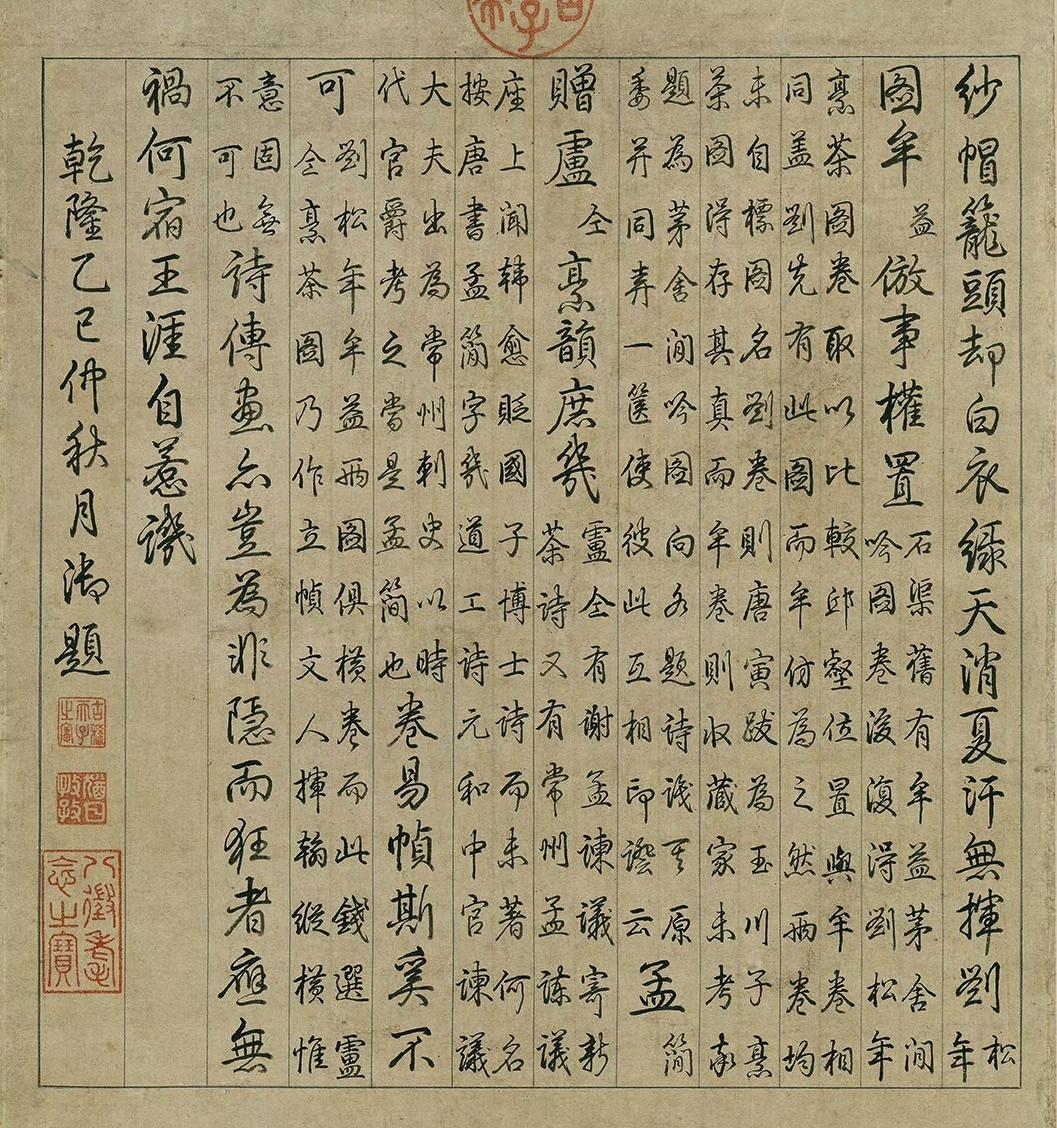 紗帽籠頭却白衣綠天消夏汗無揮劉松年
圖牟益倣事權置石渠舊有牟益茅舍閒
吟圖卷後復得劉松年
烹茶圖卷取以比較邱壑位置與牟卷相
同蓋劉先有此圖而牟仿為之然兩卷均
未自標圖名劉卷則唐寅跋為玉川子烹
茶圖得存其真而牟卷則收藏家未考
題為茅舍閒吟圖向各題詩識其原
委并同弆一篋使彼此互相印證云孟簡
贈盧仝烹韻庶幾盧仝有謝孟諫議寄新
茶詩又有常州孟諫議
座上聞韓愈貶國子博士詩而未著何名
按唐書孟簡字幾道工詩元和中官諫議
大夫出為常州刺史以時
代官爵考之當是孟簡也卷易幀斯奚不
可劉松年牟益兩圖俱橫卷而此錢選盧
仝烹茶圖乃作立幀文人揮翰縱橫惟
意固無
不可也詩傳畫亦豈為非隱而狂者應無
禍何宿王涯自惹譏
乾隆乙巳仲秋月御題
古稀天子之寶
猶日孜孜
八徵耄念之寶